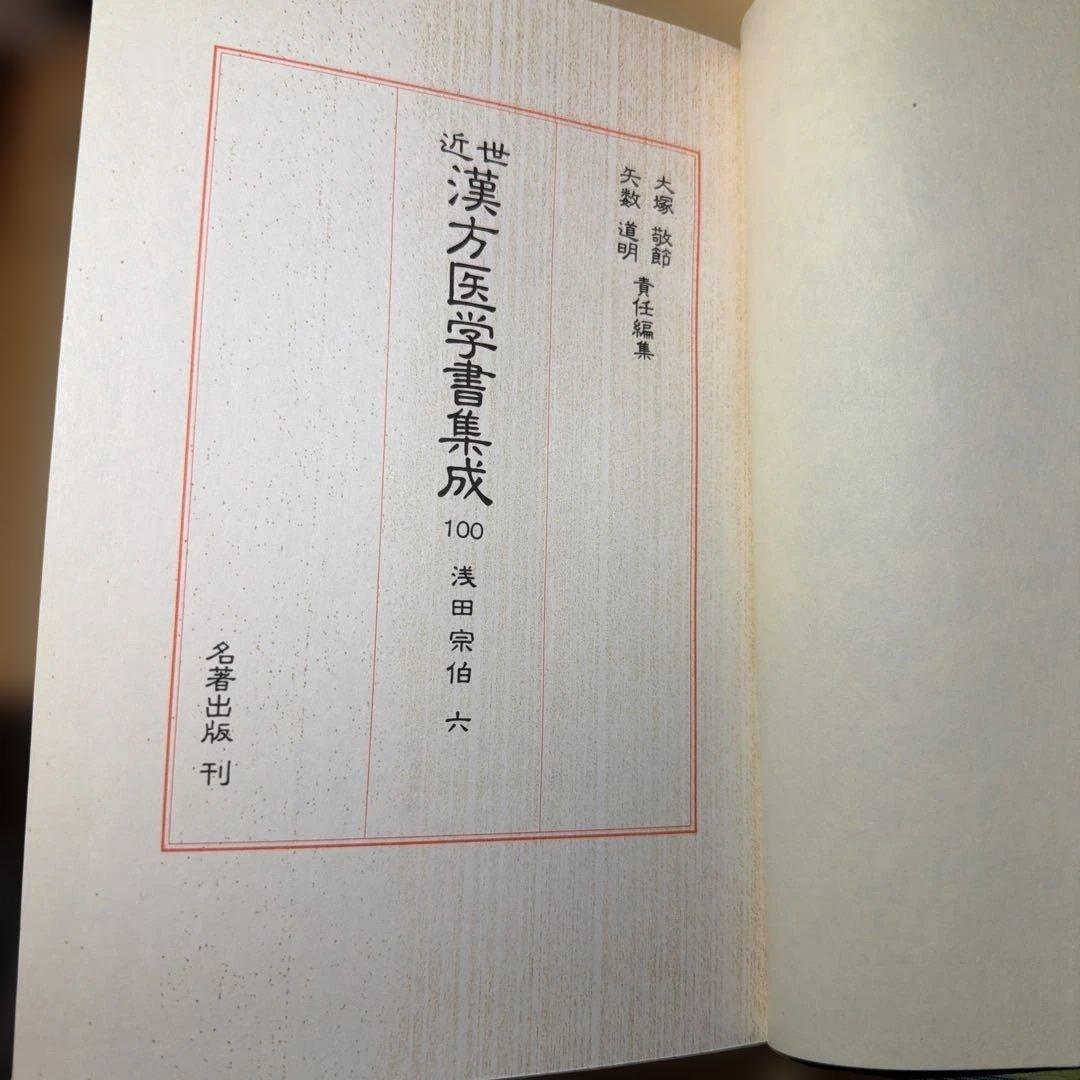 大塚 敬節
矢数 道明
責任編集
近世漢方医学書集成 100 浅田宗伯 六
名著出版 刊